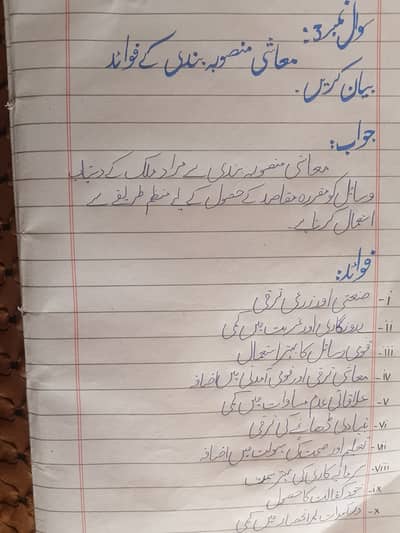 سوال نمبر 3:
معاشی منصوبہ بندی کے فوائد
بیان کریں۔
جواب:
معاشی منصوبہ بندی سے مراد ملک کے دستیاب
وسائل کو مقررہ مقاصد کے حصول کے لیے منظم طریقے سے
استعمال کرنا ہے۔
فوائد:
i- صنعتی اور زرعی ترقی
ii- بیروزگاری اور غربت میں کمی
iii- قومی وسائل کا بہتر استعمال
iv- معاشی ترقی اور قومی آمدنی میں اضافہ
v- علاقائی عدم مساوات میں کمی
vi- بنیادی ڈھانچے کی ترقی
vii- تعلیم اور صحت کی سہولت میں اضافہ
viii- سرمایہ کاری کی بہتر سمت
ix- خود کفالت کا حصول
x- درآمدات پر انحصار میں کمی